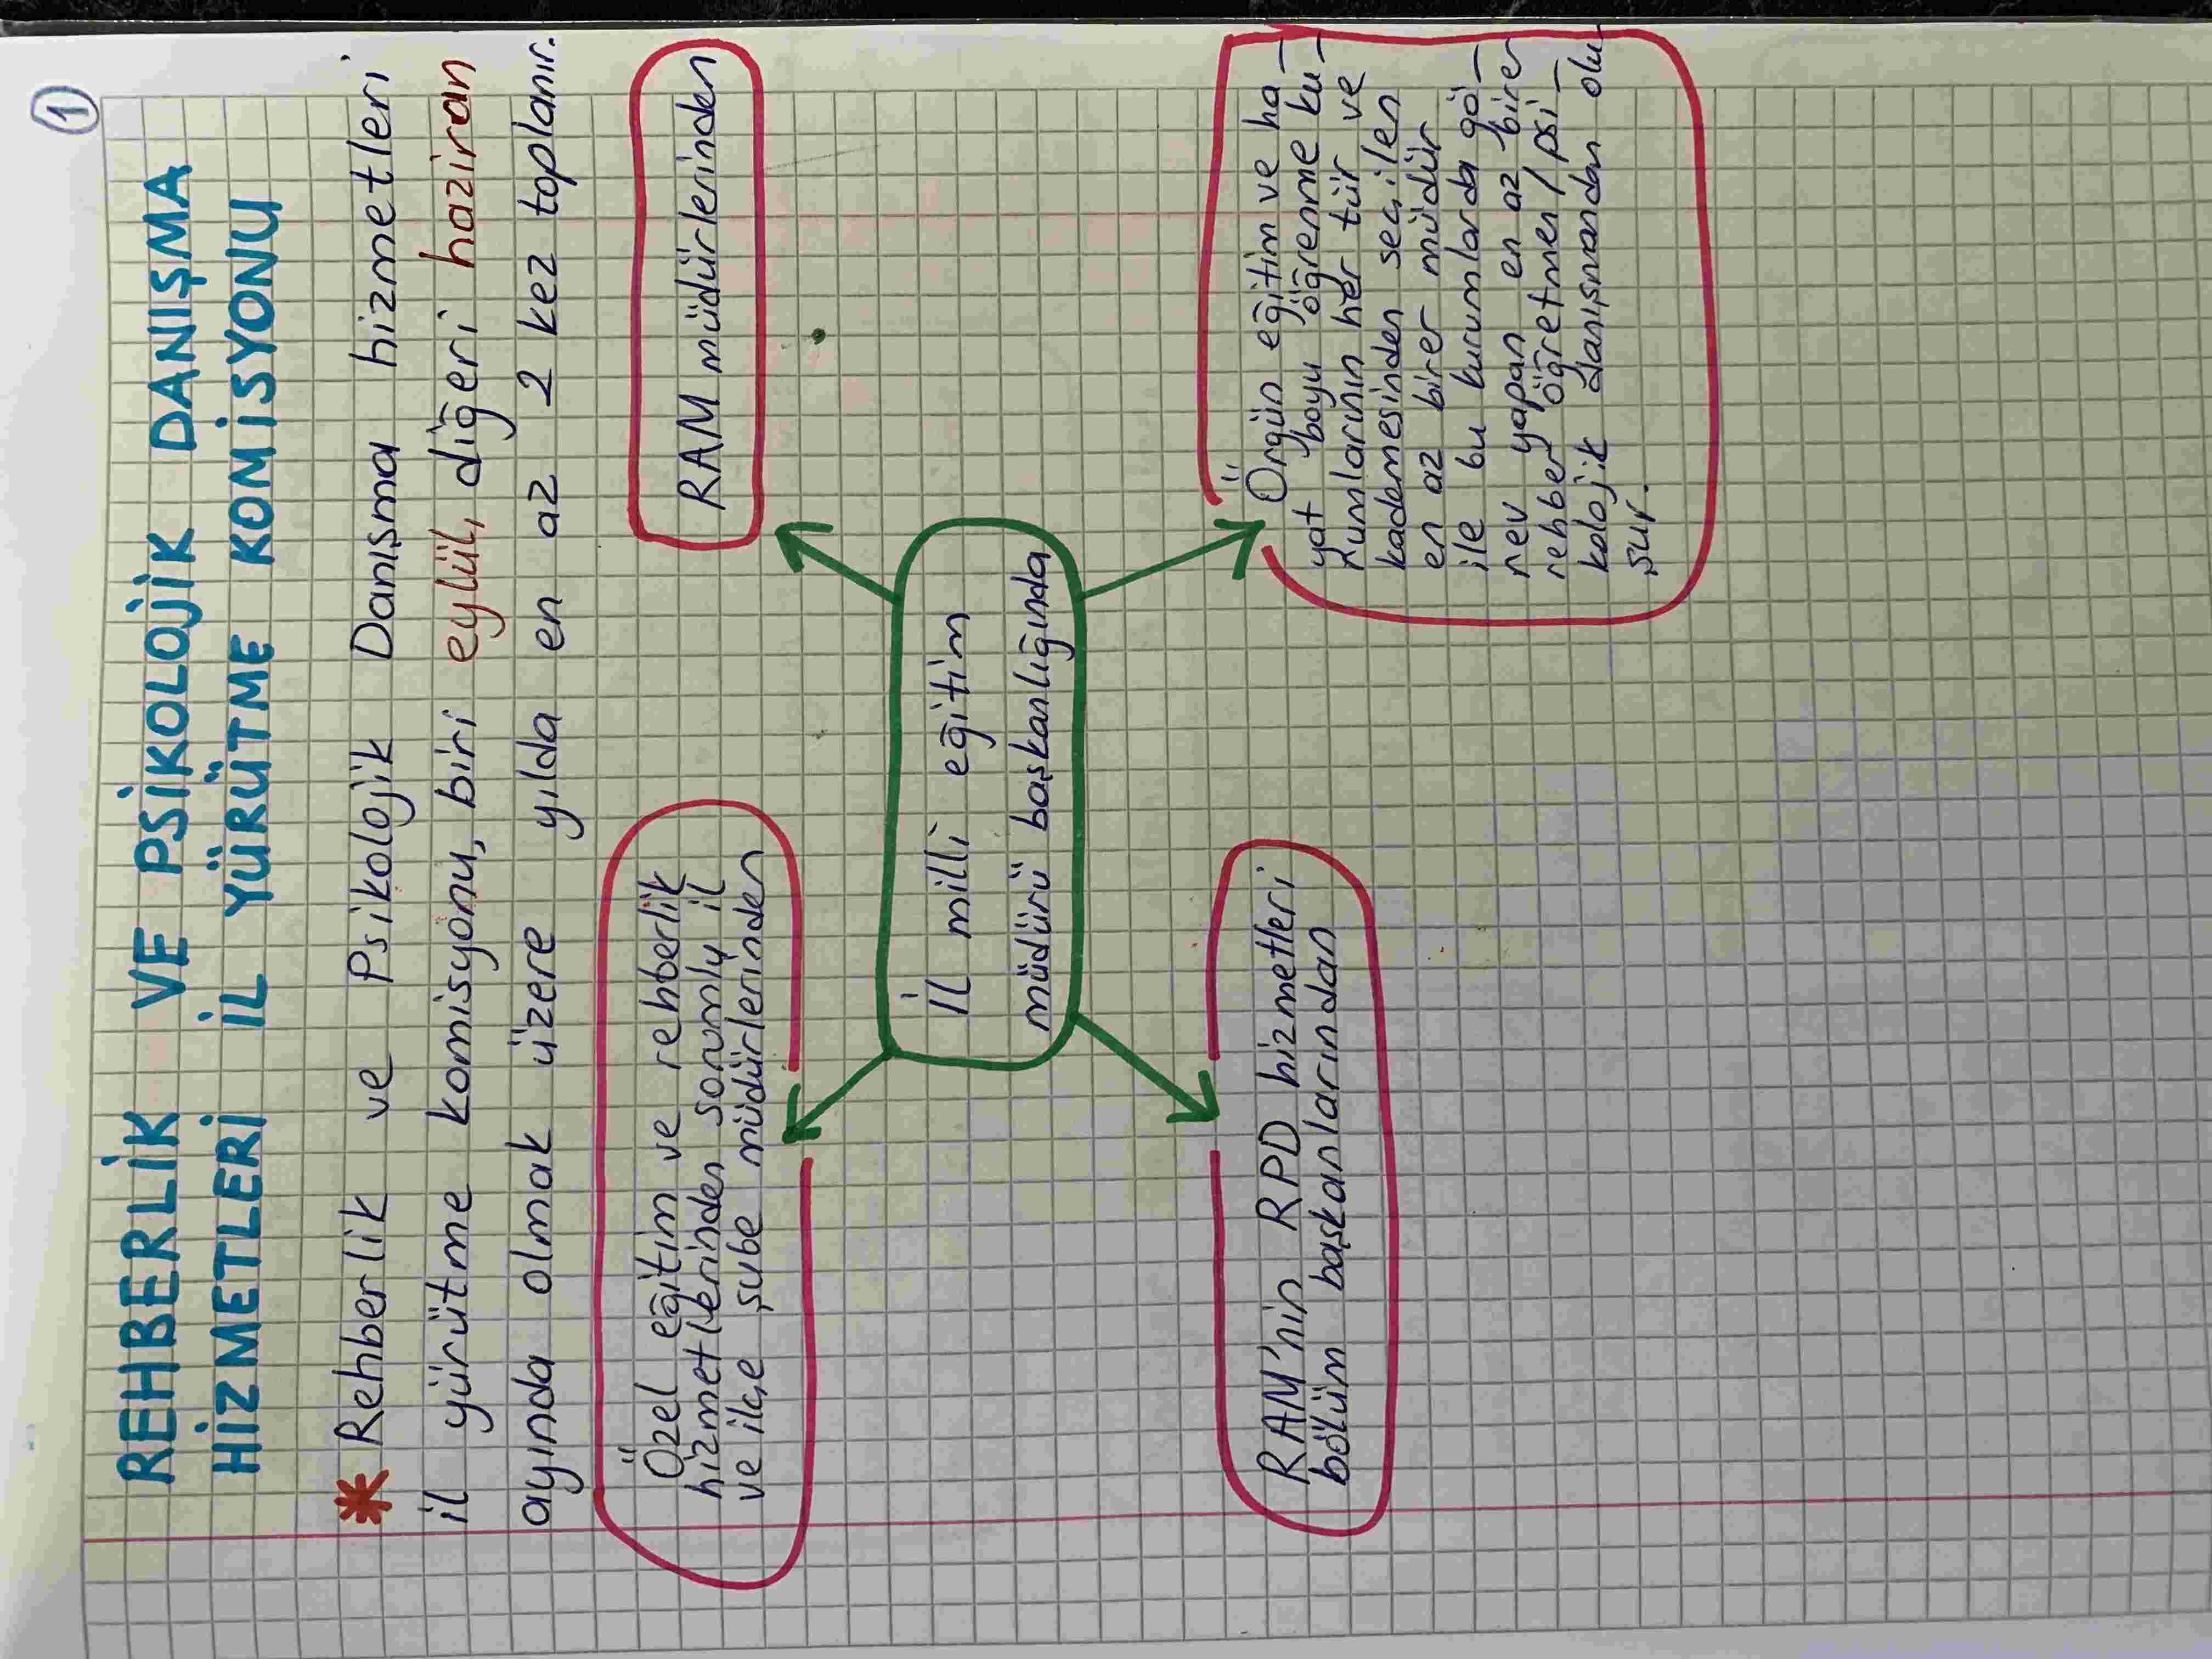 1
REHBERLİK VE PSİKOLOJİK DANIŞMA
HİZMETLERİ İL YÜRÜTME KOMİSYONU
* Rehberlik ve Psikolojik Danışma hizmetleri
il yürütme komisyonu, biri eylül, diğeri haziran
ayında olmak üzere yılda en az 2 kez toplanır.
Özel eğitim ve rehberlik
hizmetlerinden sorumlu il
ve ilçe şube müdürlerinden
RAM müdürlerinden
İl milli eğitim
müdürü başkanlığında
RAM'nin RPD hizmetleri
bölüm başkanlarından
Örgün eğitim ve ha-
yat boyu öğrenme ku-
rumlarının her tür ve
kademesinden seçilen
en az birer müdür
ile bu kurumlarda gö-
rev yapan en az birer
rehber öğretmen/psi-
kolojik danışmandan olu-
şur.